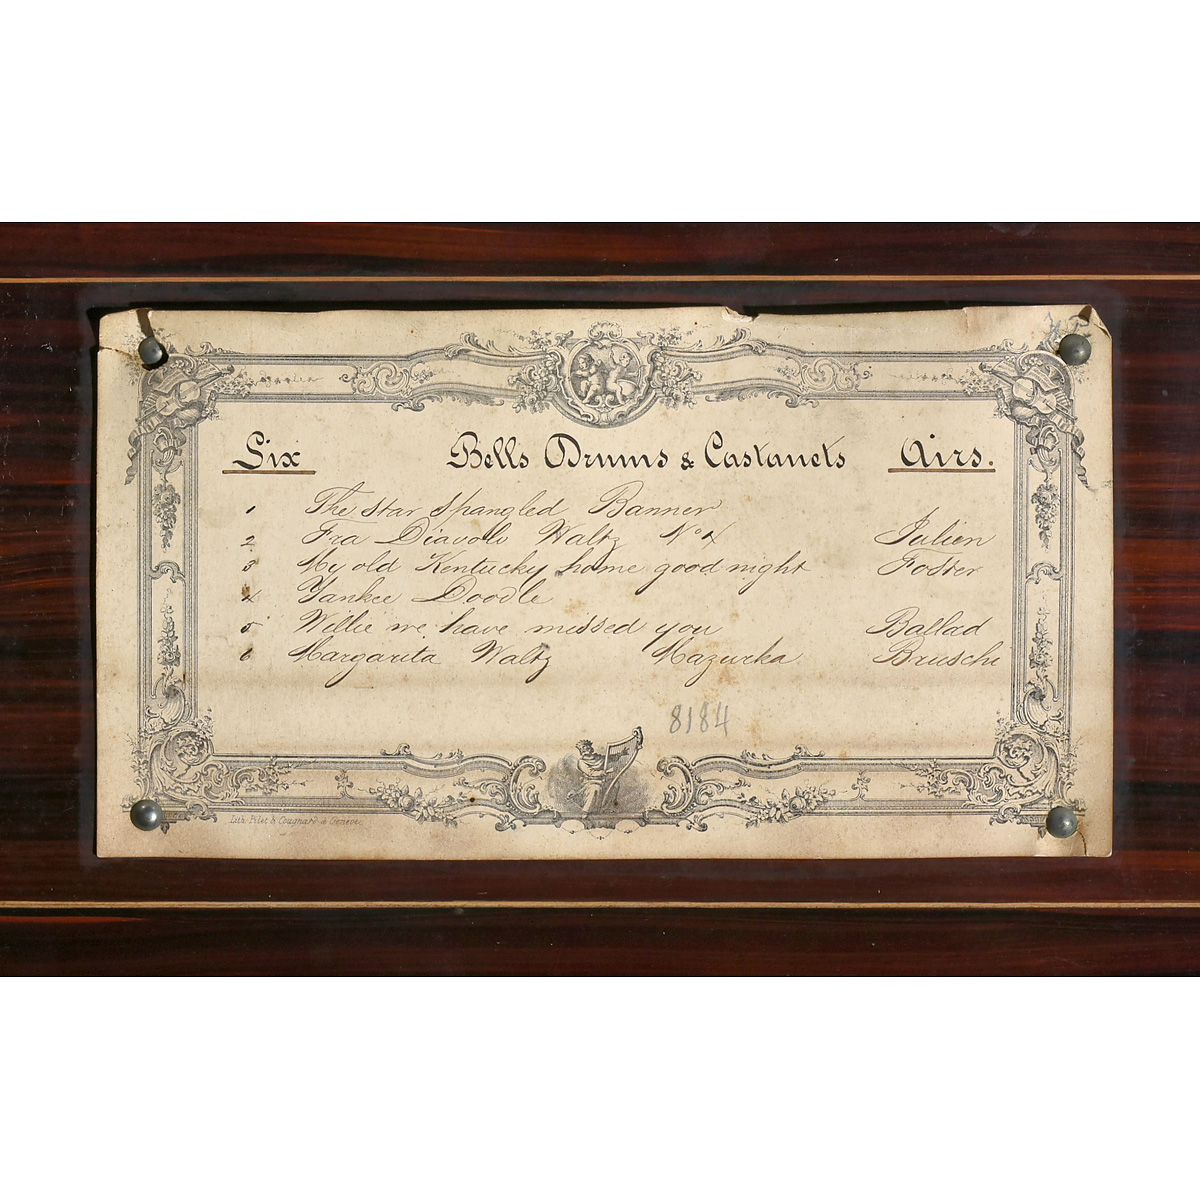 Six Bells Drums & Castanets Airs.
1 The Star Spangled Banner
2 Fra Diavolo Waltz No 4 Julien
3 My old Kentucky home good night Foster
4 Yankee Doodle
5 Willie we have missed you Ballad
6 Margarita Waltz Mazurka Bruschi
8184
Lith. Pilet & Cougnard à Genève.